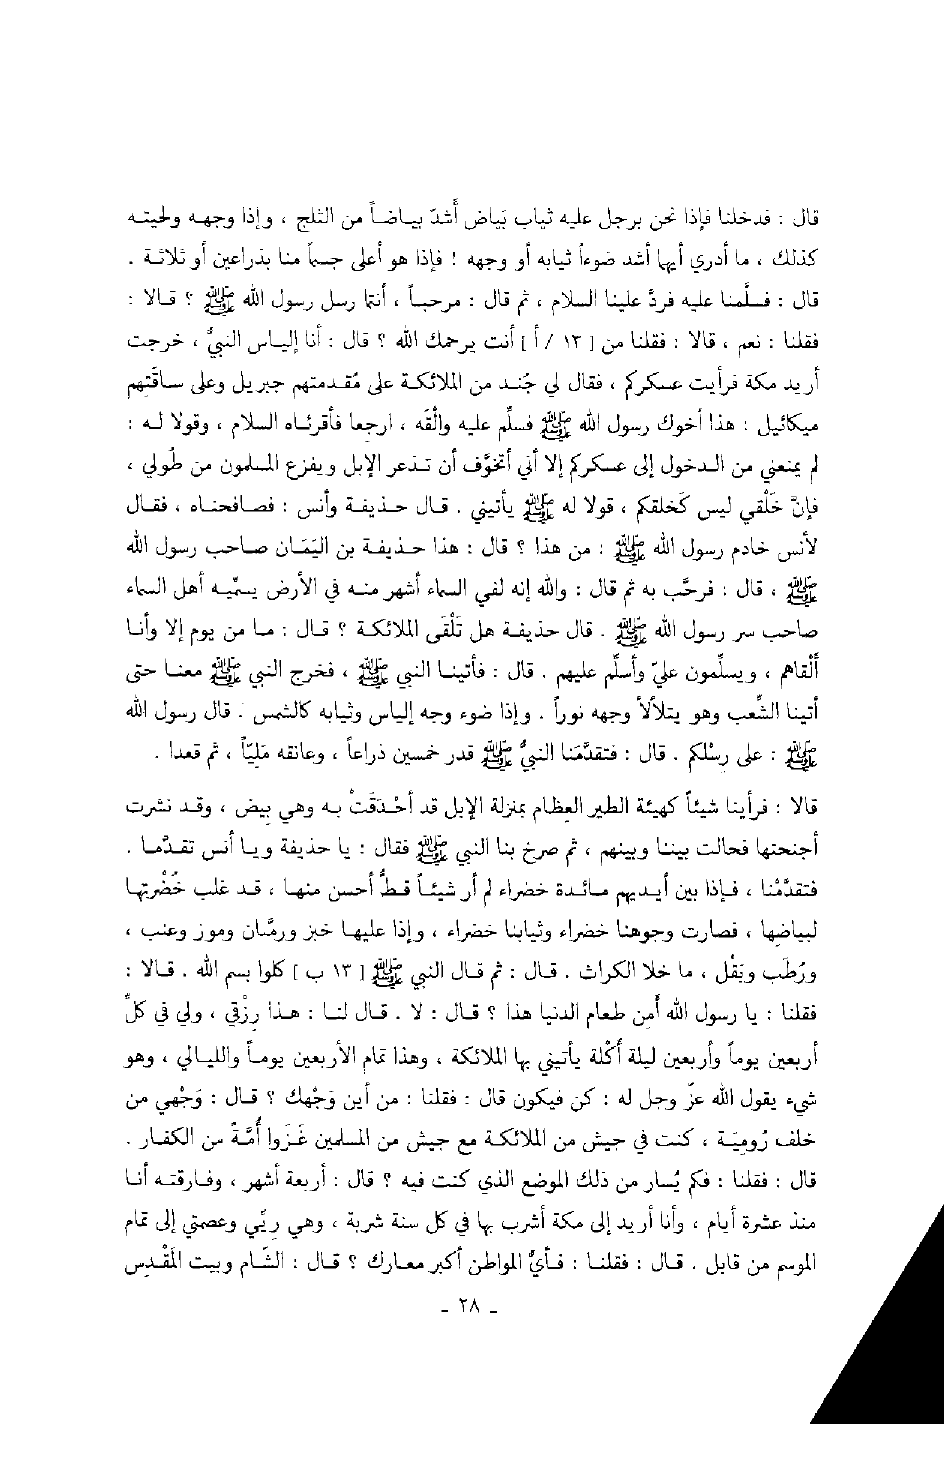 قال : فدخلنا فإذا نحن برجل عليه ثياب بَيَاض أَشدّ بيـاضـاً من الثلج ، وإذا وجهـه ولحيتـه
كذلك ، ما أدري أيها أشد ضوءاً ثيابه أو وجهه ! فإذا هو أعلى جسماً منا بذراعين أو ثلاثـة .
قال : فسلَّمنا عليه فردَّ علينا السلام ، ثم قال : مرحباً ، أنتما رسل رسول الله ﷺ ؟ قـالا :
فقلنا : نعم ، قالا : فقلنا من [ ١٣ / أ ] أنت يرحمك الله ؟ قال : أنا إلياس النبيُّ ، خرجت
أريد مكة فرأيت عسكركم ، فقال لي جُنـد من الملائكـة على مُقدمتهم جبريل وعلى سـاقَتِهم
ميكائيل : هذا أخوك رسول الله ﷺ فسلِّم عليه والْقَه ، ارجعا فأقرئـاه السلام ، وقولا لـه :
لم يمنعني من الـدخول إلى عسكركم إلا أني أتخوَّف أن تـذعر الإبل ويفزع المسلمون من طُولي ،
فإنَّ خَلْقي ليس كَخلقكم ، قولا له ﷺ يأتيني . قـال حـذيفـة وأنس : فصافحنـاه ، فقـال
لأنس خادم رسول الله ﷺ : من هذا ؟ قال : هذا حـذيفـة بن اليَمَـان صـاحب رسول الله
ﷺ ، قال : فرحَّب به ثم قال : والله إنه لفي السماء أشهر منـه في الأرض يسمِّيـه أهل السماء
صاحب سر رسول الله ﷺ . قال حذيفـة هل تَلْقَى الملائكـة ؟ قـال : مـا من يوم إلا وأنـا
أَلْقاهم ، ويسلِّمون عليّ وأسلِّم عليهم . قال : فأتينـا النبي ﷺ ، فخرج النبي ﷺ معنـا حتى
أتينا الشِّعب وهو يتلألأ وجهه نوراً . وإذا ضوء وجه إلياس وثيابه كالشمس . قال رسول الله
ﷺ : على رِسْلكم . قال : فتقدَّمَنا النبيُّ ﷺ قدر خمسين ذراعاً ، وعانقه مَلِيّاً ، ثم قعدا .
قالا : فرأينا شيئاً كهيئة الطير العِظام بمنزلة الإبل قد أحْـدَقَتْ بـه وهي بِيض ، وقـد نشرت
أجنحتها فحالت بيننا وبينهم ، ثم صرخ بنا النبي ﷺ فقال : يا حذيفة ويـا أنس تقـدَّمـا .
فتقدَّمْنا ، فـإذا بين أيـديهم مـائـدة خضراء لم أر شيئـاً قـطُّ أحسن منهـا ، قـد غلب خُضْرتها
لبياضِها ، فصارت وجوهنا خضراء وثيابنا خضراء ، وإذا عليهـا خبز ورمَّـان وموز وعنب ،
ورُطَب وبَقْل ، ما خلا الكراث . قـال : ثم قال النبي ﷺ [ ١٣ ب ] كلوا بسم الله . قـالا :
فقلنـا : يا رسول الله أَمِن طعام الدنيا هذا ؟ قـال : لا . قـال لنـا : هـذا رِزْقي ، ولي في كلِّ
أربعين يوماً وأربعين ليلة أكْلة يأتيني بها الملائكة ، وهذا تمام الأربعين يومـاً والليـالي ، وهو
شيء يقول الله عزّ وجل له : كن فيكون قال : فقلنا : من أين وَجْهك ؟ قـال : وَجْهي من
خلف رُوميَـة ، كنت في جيش من الملائكـة مع جيش من المسلمين غَـزَوا أُمَّـةً من الكفـار .
قال : فقلنـا : فكم يُسار من ذلك الموضع الذي كنت فيه ؟ قال : أربعة أشهر ، وفـارقتـه أنـا
منذ عشرة أيام ، وأنا أريد إلى مكة أشرب بها في كل سنة شربة ، وهي رِيِّي وعصمتي إلى تمام
الموسم من قابل . قـال : فقلنـا : فـأيُّ المواطن أكبر معـارك ؟ قـال : الشّام وبيت المَقْدِس
- ٢٨ -